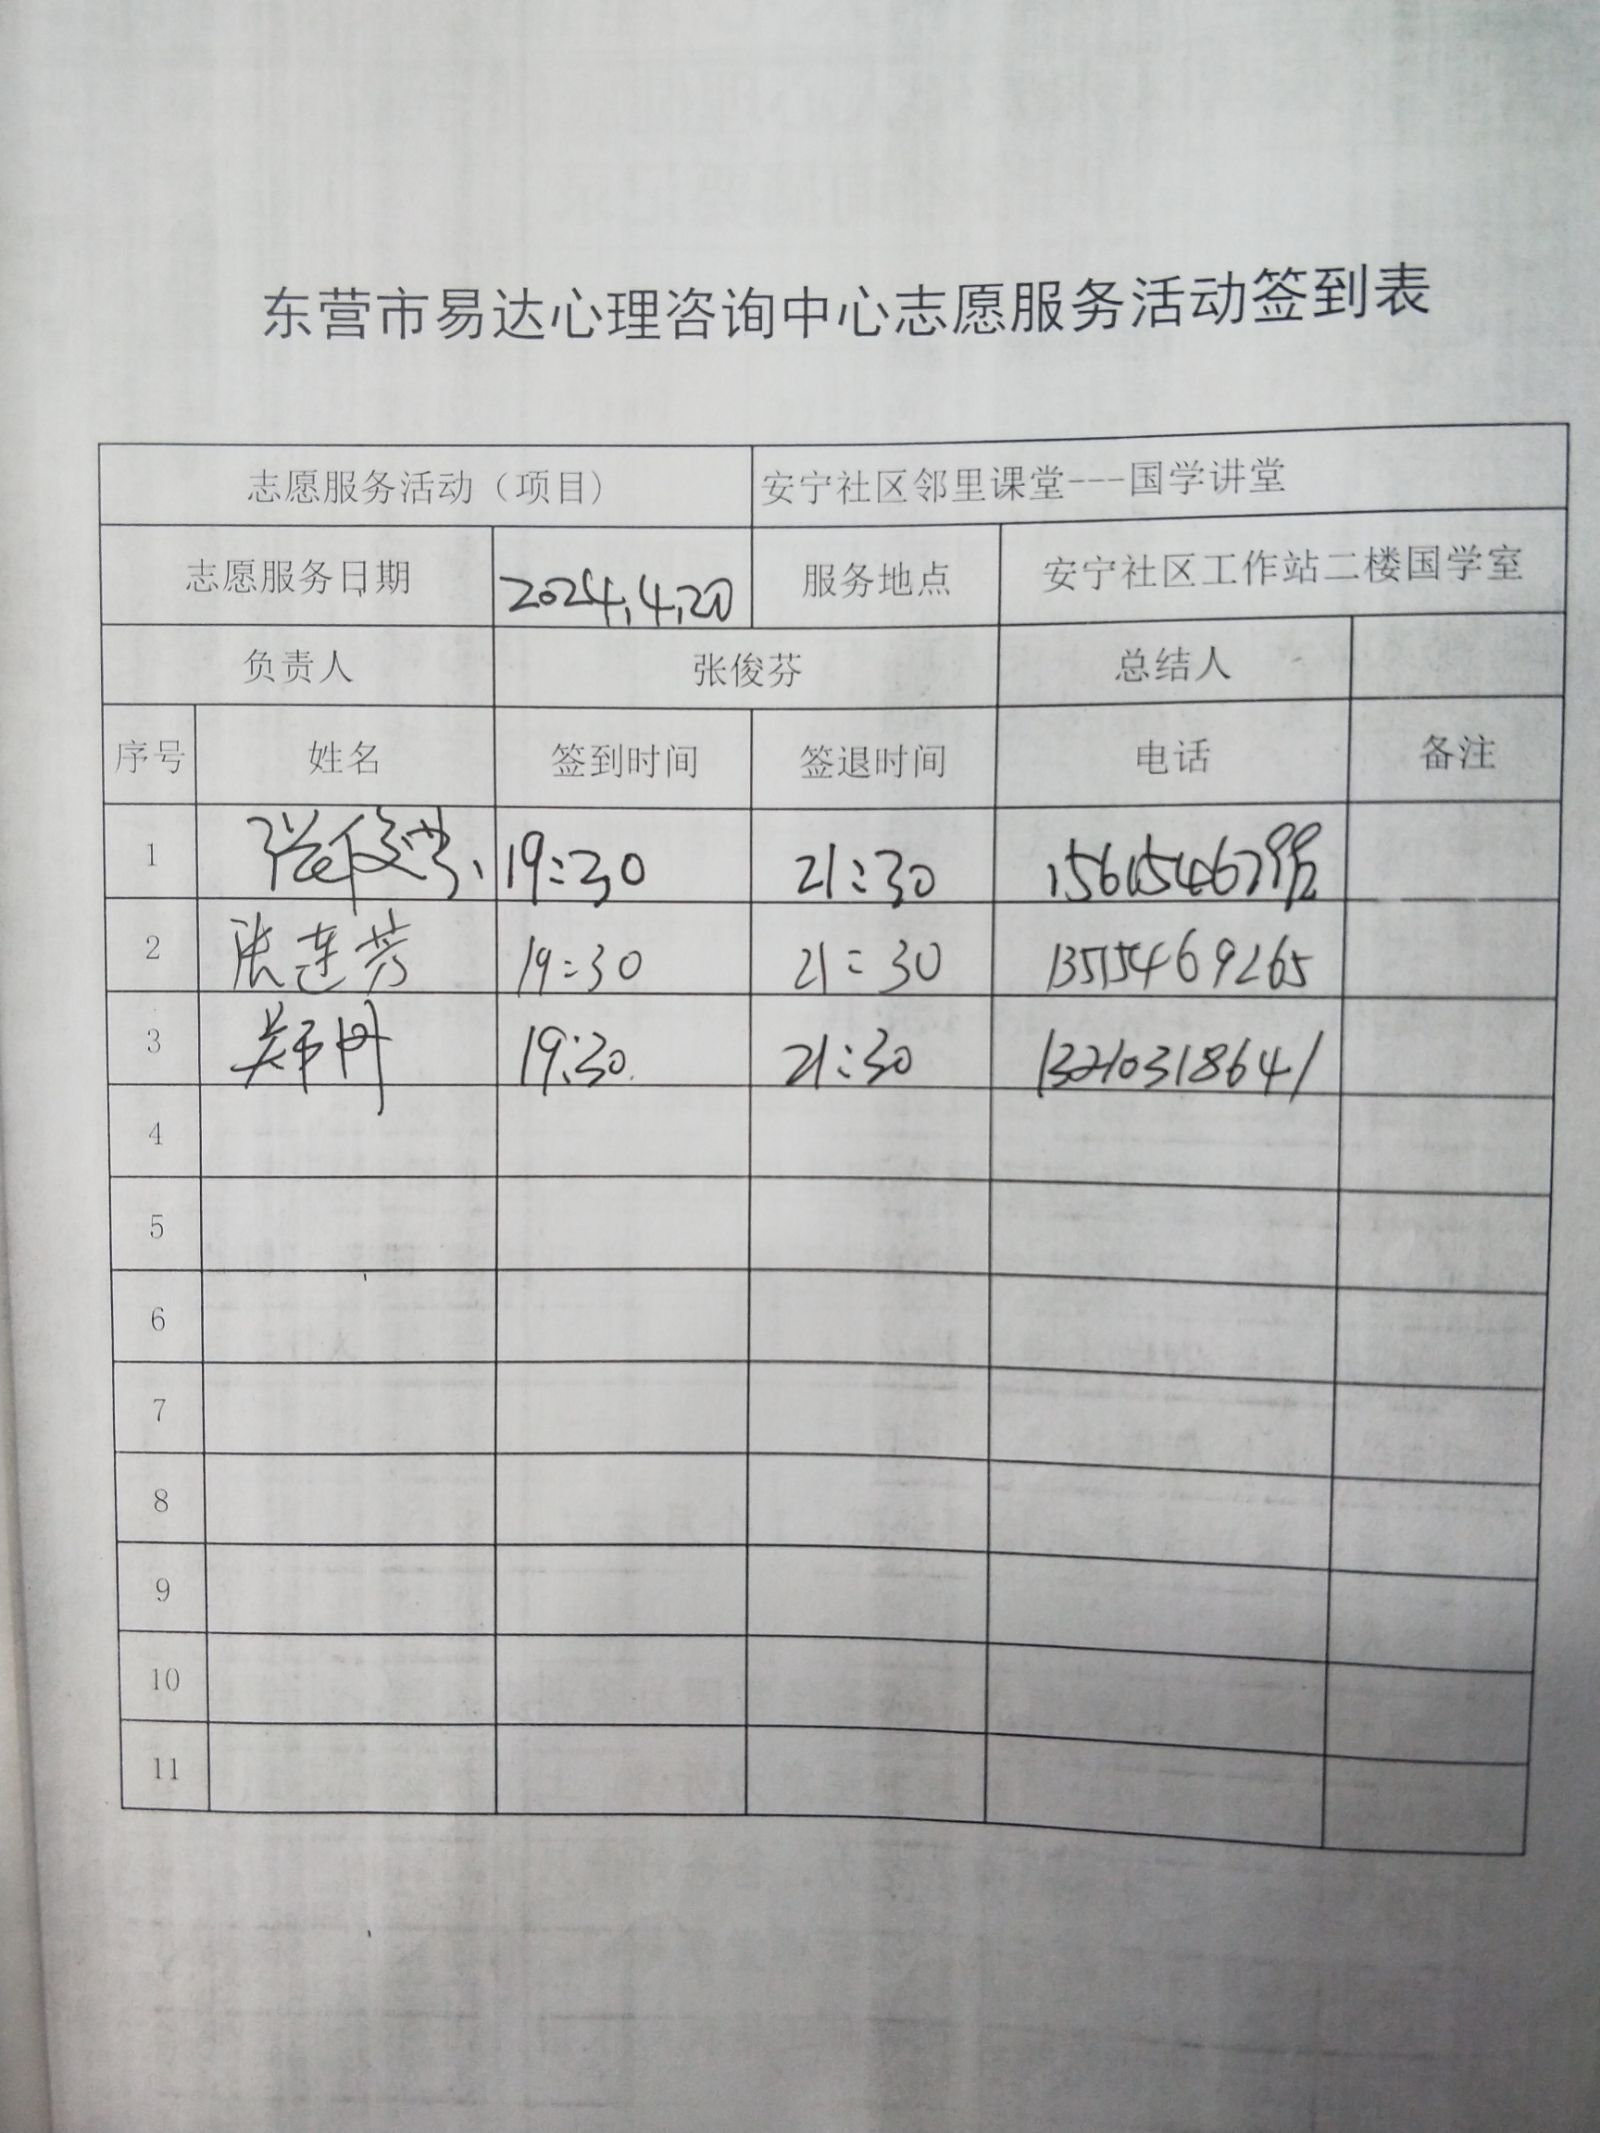 东营市易达心理咨询中心志愿服务活动签到表
志愿服务活动（项目） 安宁社区邻里课堂---国学讲堂
志愿服务日期 2024.4.20 服务地点 安宁社区工作站二楼国学室
负责人 张俊芬 总结人
序号 姓名 签到时间 签退时间 电话 备注
1 张俊芬 19:30 21:30
2 张连芳 19:30 21:30 13515469265
3 郑丹 19:30 21:30 13210318641
4
5
6
7
8
9
10
11